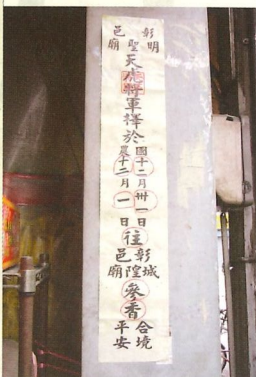 彰邑
明聖廟
天虎將軍擇於
國十二月卅一日
農十二月一日
往
彰邑
城隍廟
參香
合境
平安